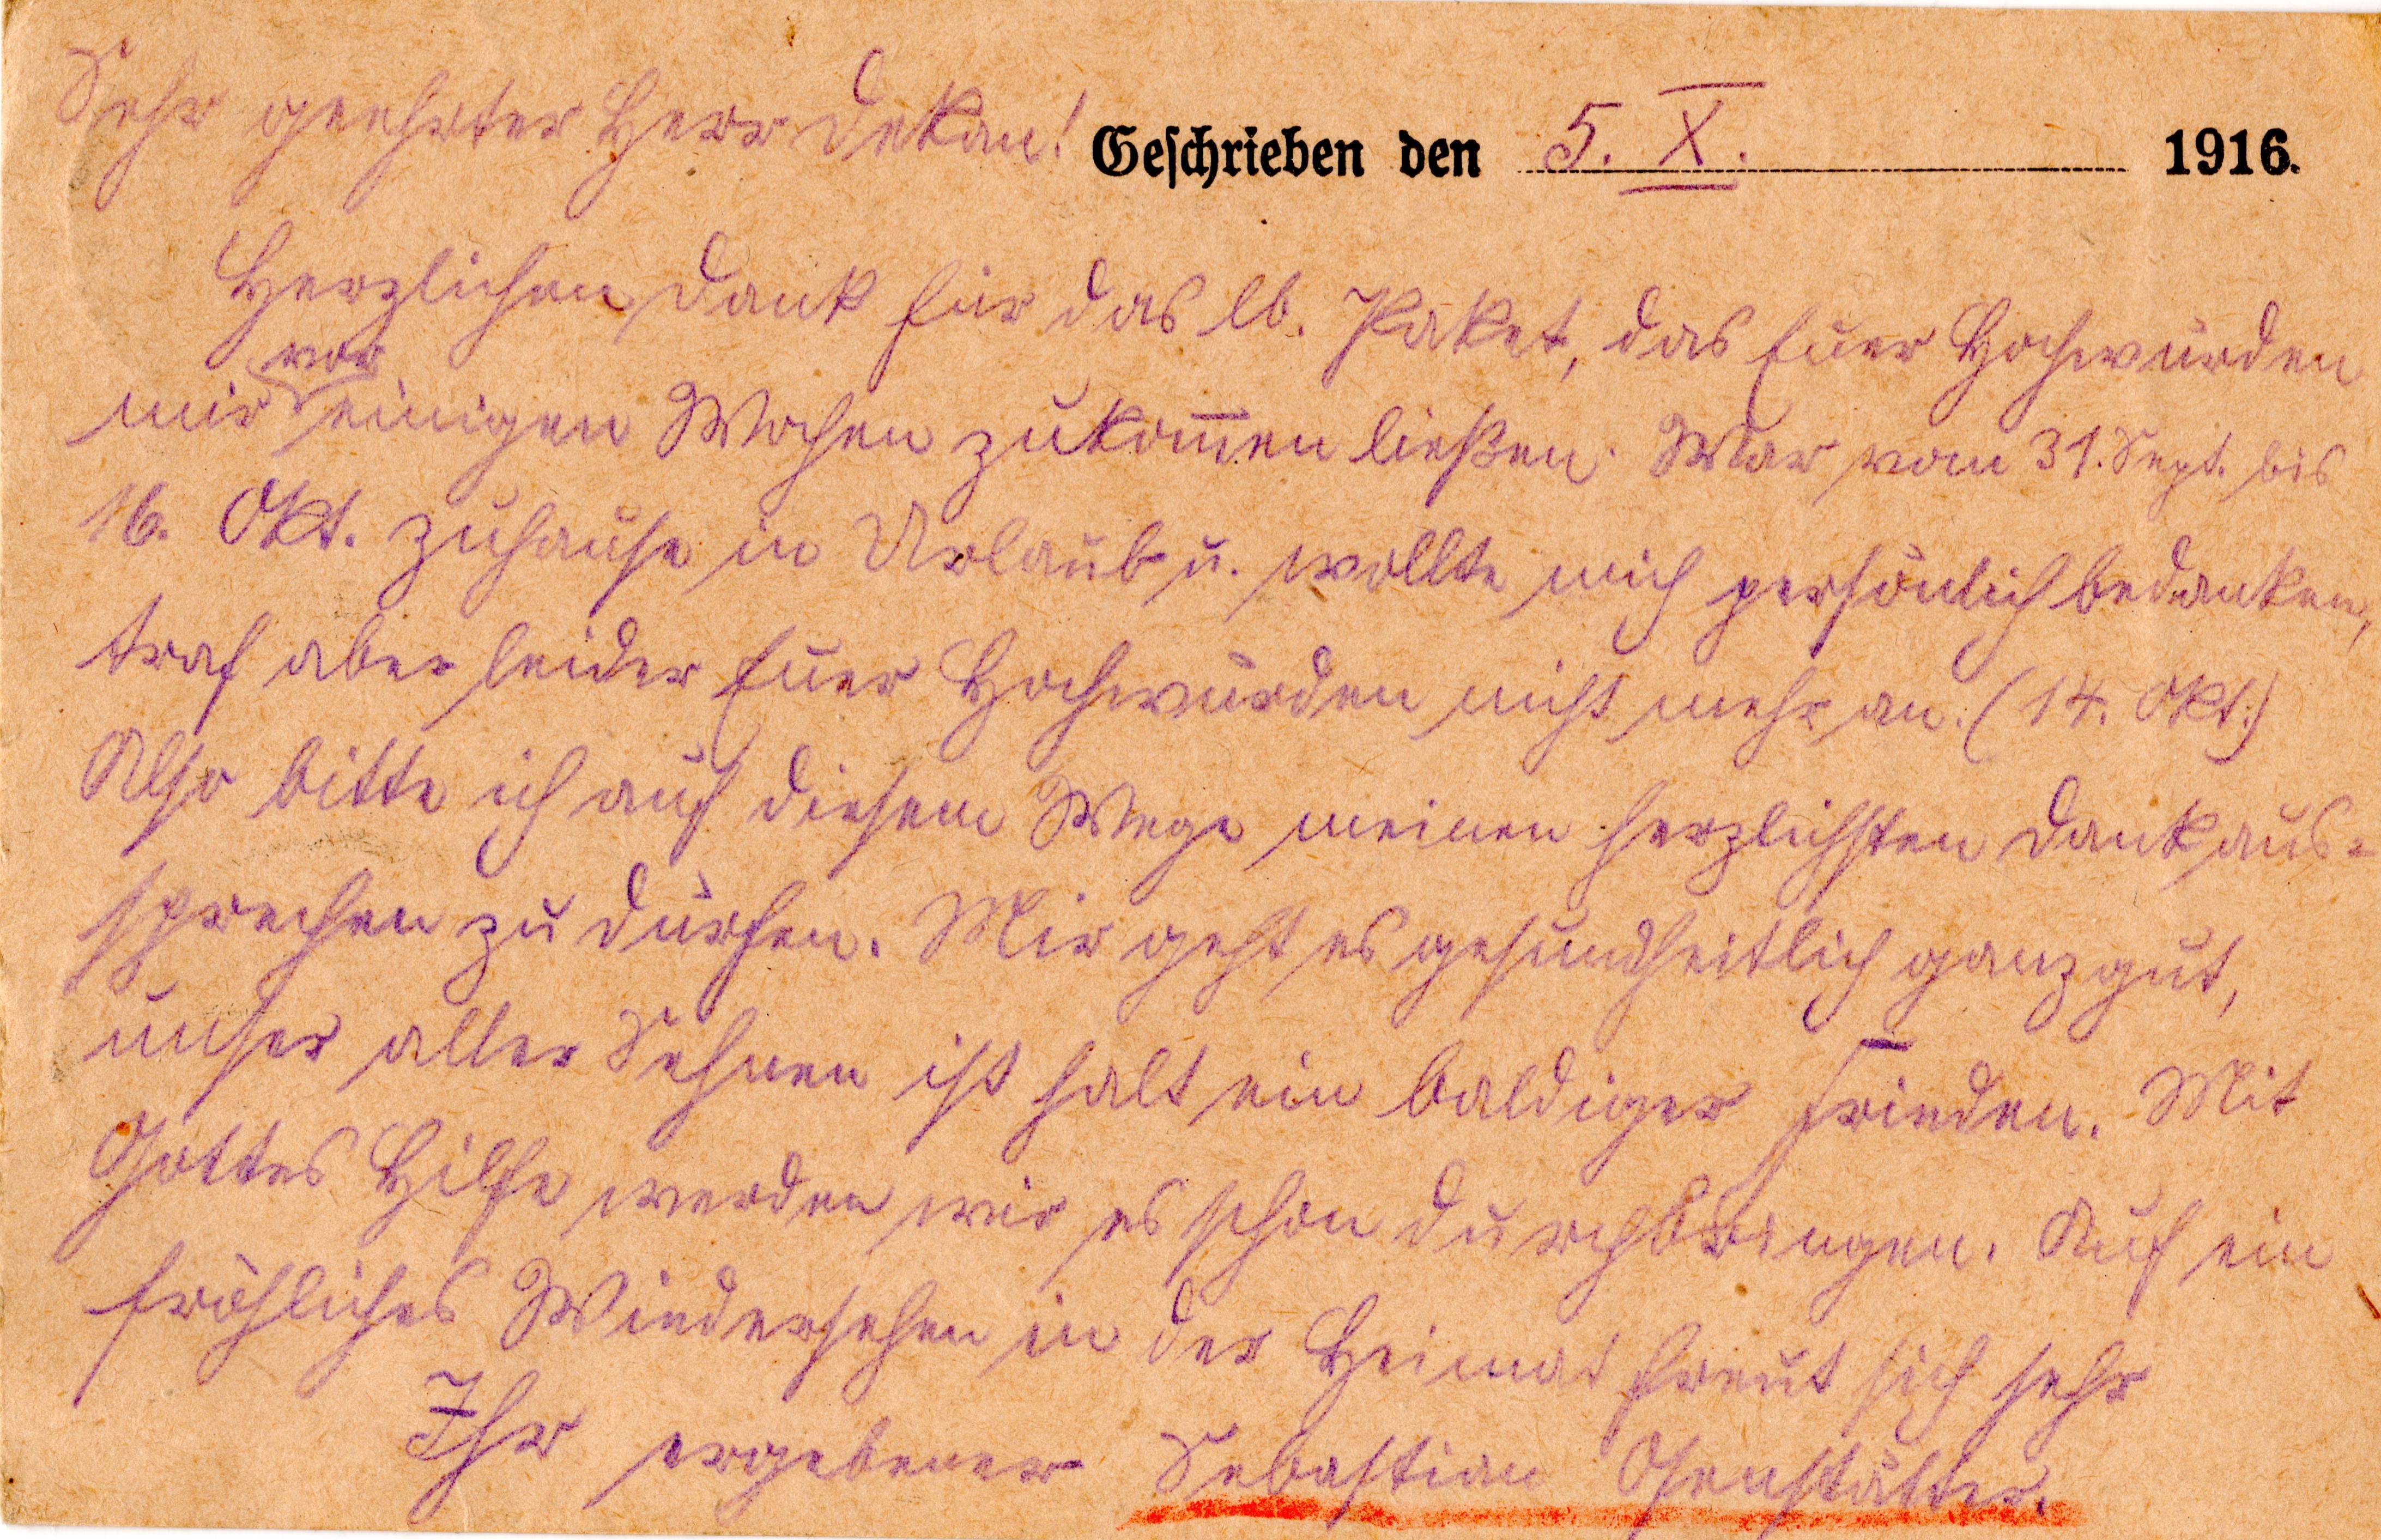 Sehr geehrter Herr Dekan!
Geschrieben den 5. X. 1916.
Herzlichen Dank für das lb. Paket, das Euer Hochwürden
vor
mir einigen Wochen zukom̅en ließen. War vom 31. Sept. bis
16. Okt. zuhause in Urlaub u. wollte mich persönlich bedanken,
traf aber leider Euer Hochwürden nicht mehr an. (14. Okt.)
Also bitte ich auf diesem Wege meinen herzlichsten Dank aus-
sprechen zu dürfen. Mir geht es gesundheitlich ganz gut,
unser aller Sehnen ist halt ein baldiger Frieden. Mit
Gottes Hilfe werden wir es schon durchbringen. Auf ein
fröhliches Wiedersehen in der Heimat freut sich sehr
Ihr ergebener Sebastian